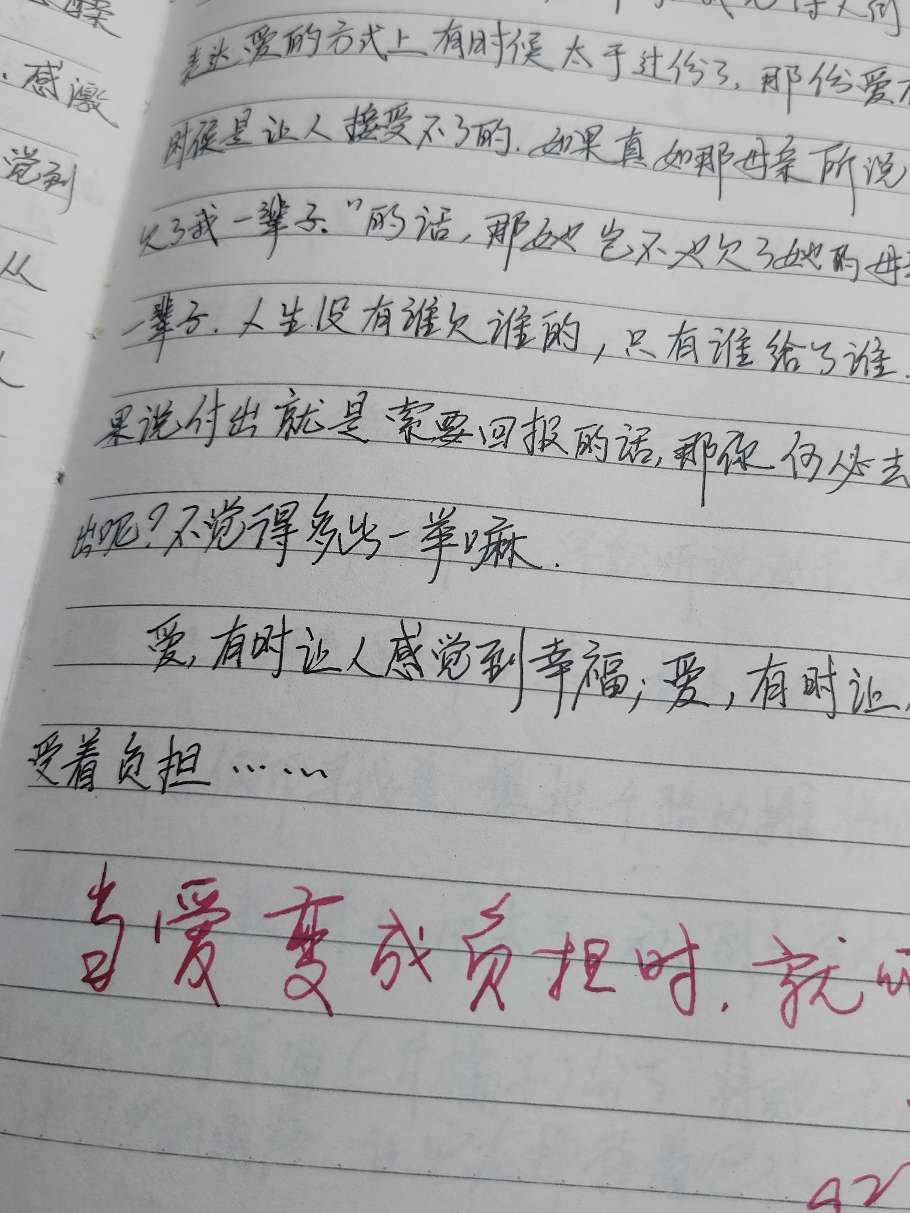 感激
觉到
从
人
表达爱的方式上有时候太于过份了,那份爱有
时候是让人接受不了的.如果真如那母亲所说
欠了我一辈子."的话,那她岂不也欠了她的母亲
一辈子.人生没有谁欠谁的,只有谁给了谁.
果说付出就是索要回报的话,那你何必去
出呢?不觉得多此一举嘛.
爱,有时让人感觉到幸福;爱,有时让人
受着负担……
当爱变成负担时.就